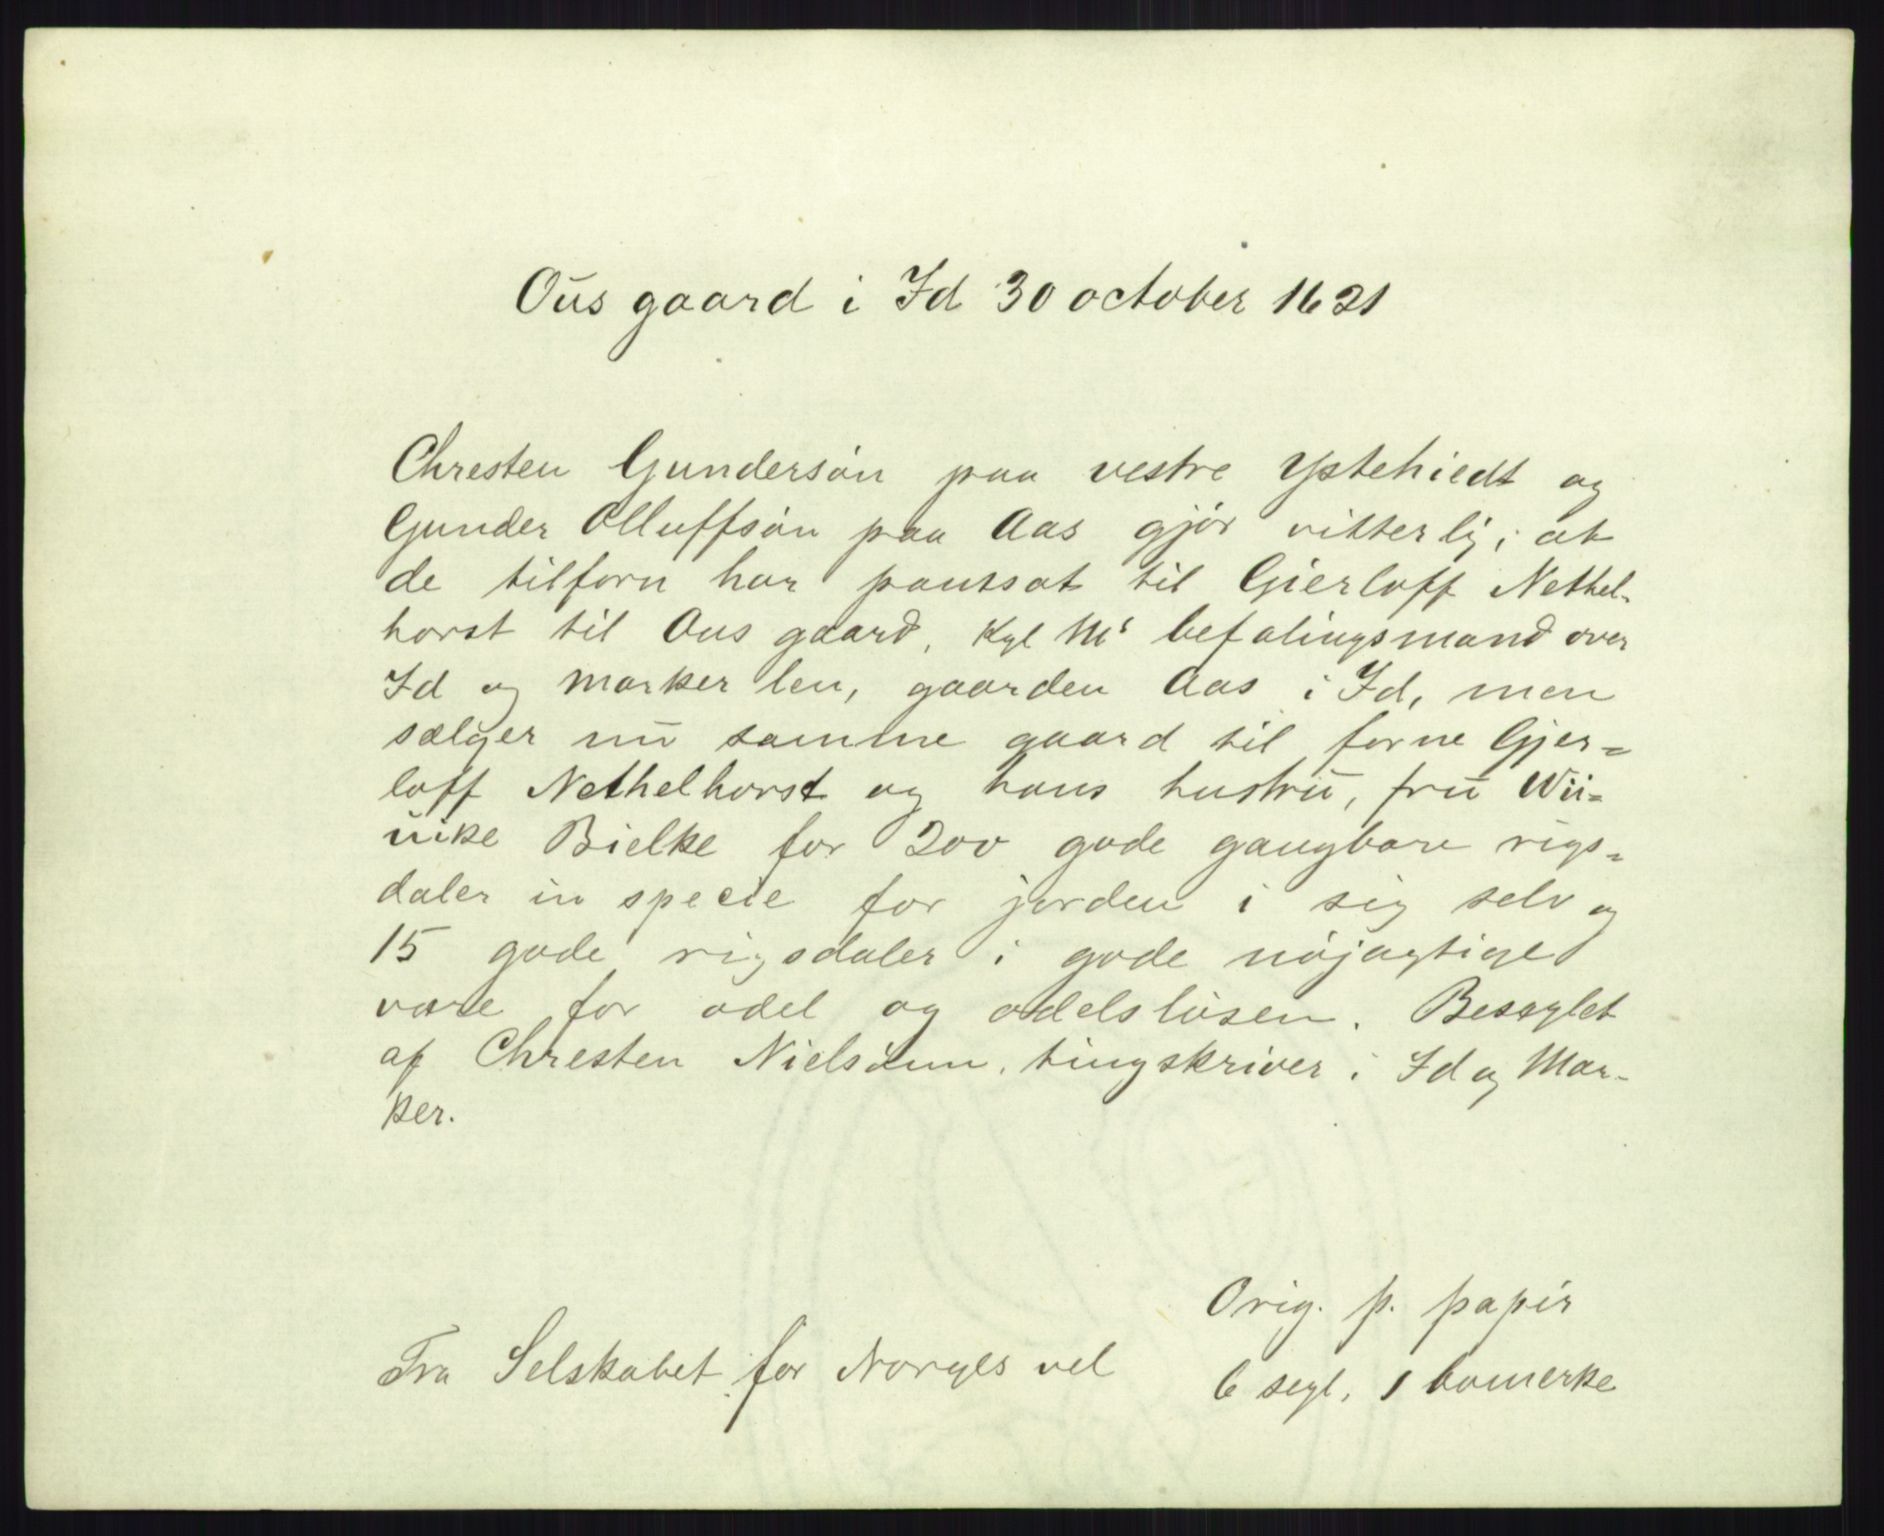 Oūs gaard i Id 30 october 1621
Chresten Gundersön paa vestre Ystehiedt og
Gunder Olluffsön paa Aas gjör vitterlig, at
de tilforn har pantsat til Gierloff Nethel-
horst til Ous gaard, Kgl Ms befalingsmand over
Id og Marker len, gaarden Aas i Id, men
sælger nū samme gaard til forne Gjer=
loff Nethelhorst og hans hustrū, frū Wii=
nike Bielke for 200 gode gangbare rigs=
daler in specie for jorden i sig selv og
15 gode rigsdaler i gode nöjagtige
vare for odel og odelslösen. Beseglet
af Chresten Nielsönn, tingskriver i Id og Mar-
ker.
Orig. p. papir
Fra Selskabet for Norges vel
6 segl, 1 bomerke